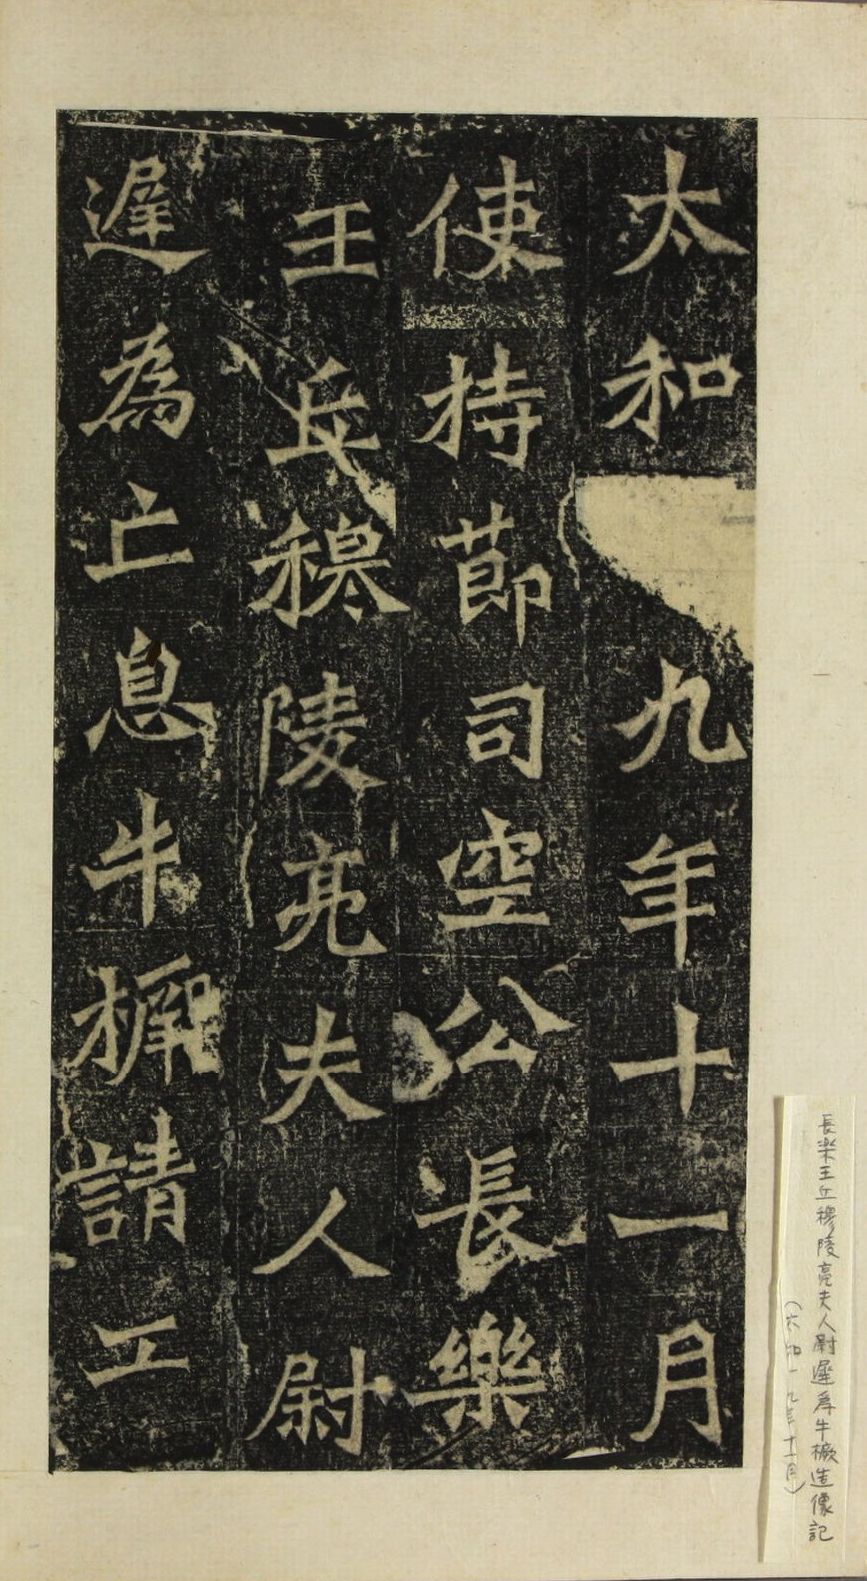 太和九年十一月
使持節司空公長樂
王丘穆陵亮夫人尉
遲為亡息牛橛請工
長楽王丘穆陵亮夫人尉遲為牛橛造像記
(太和一九年十一月)